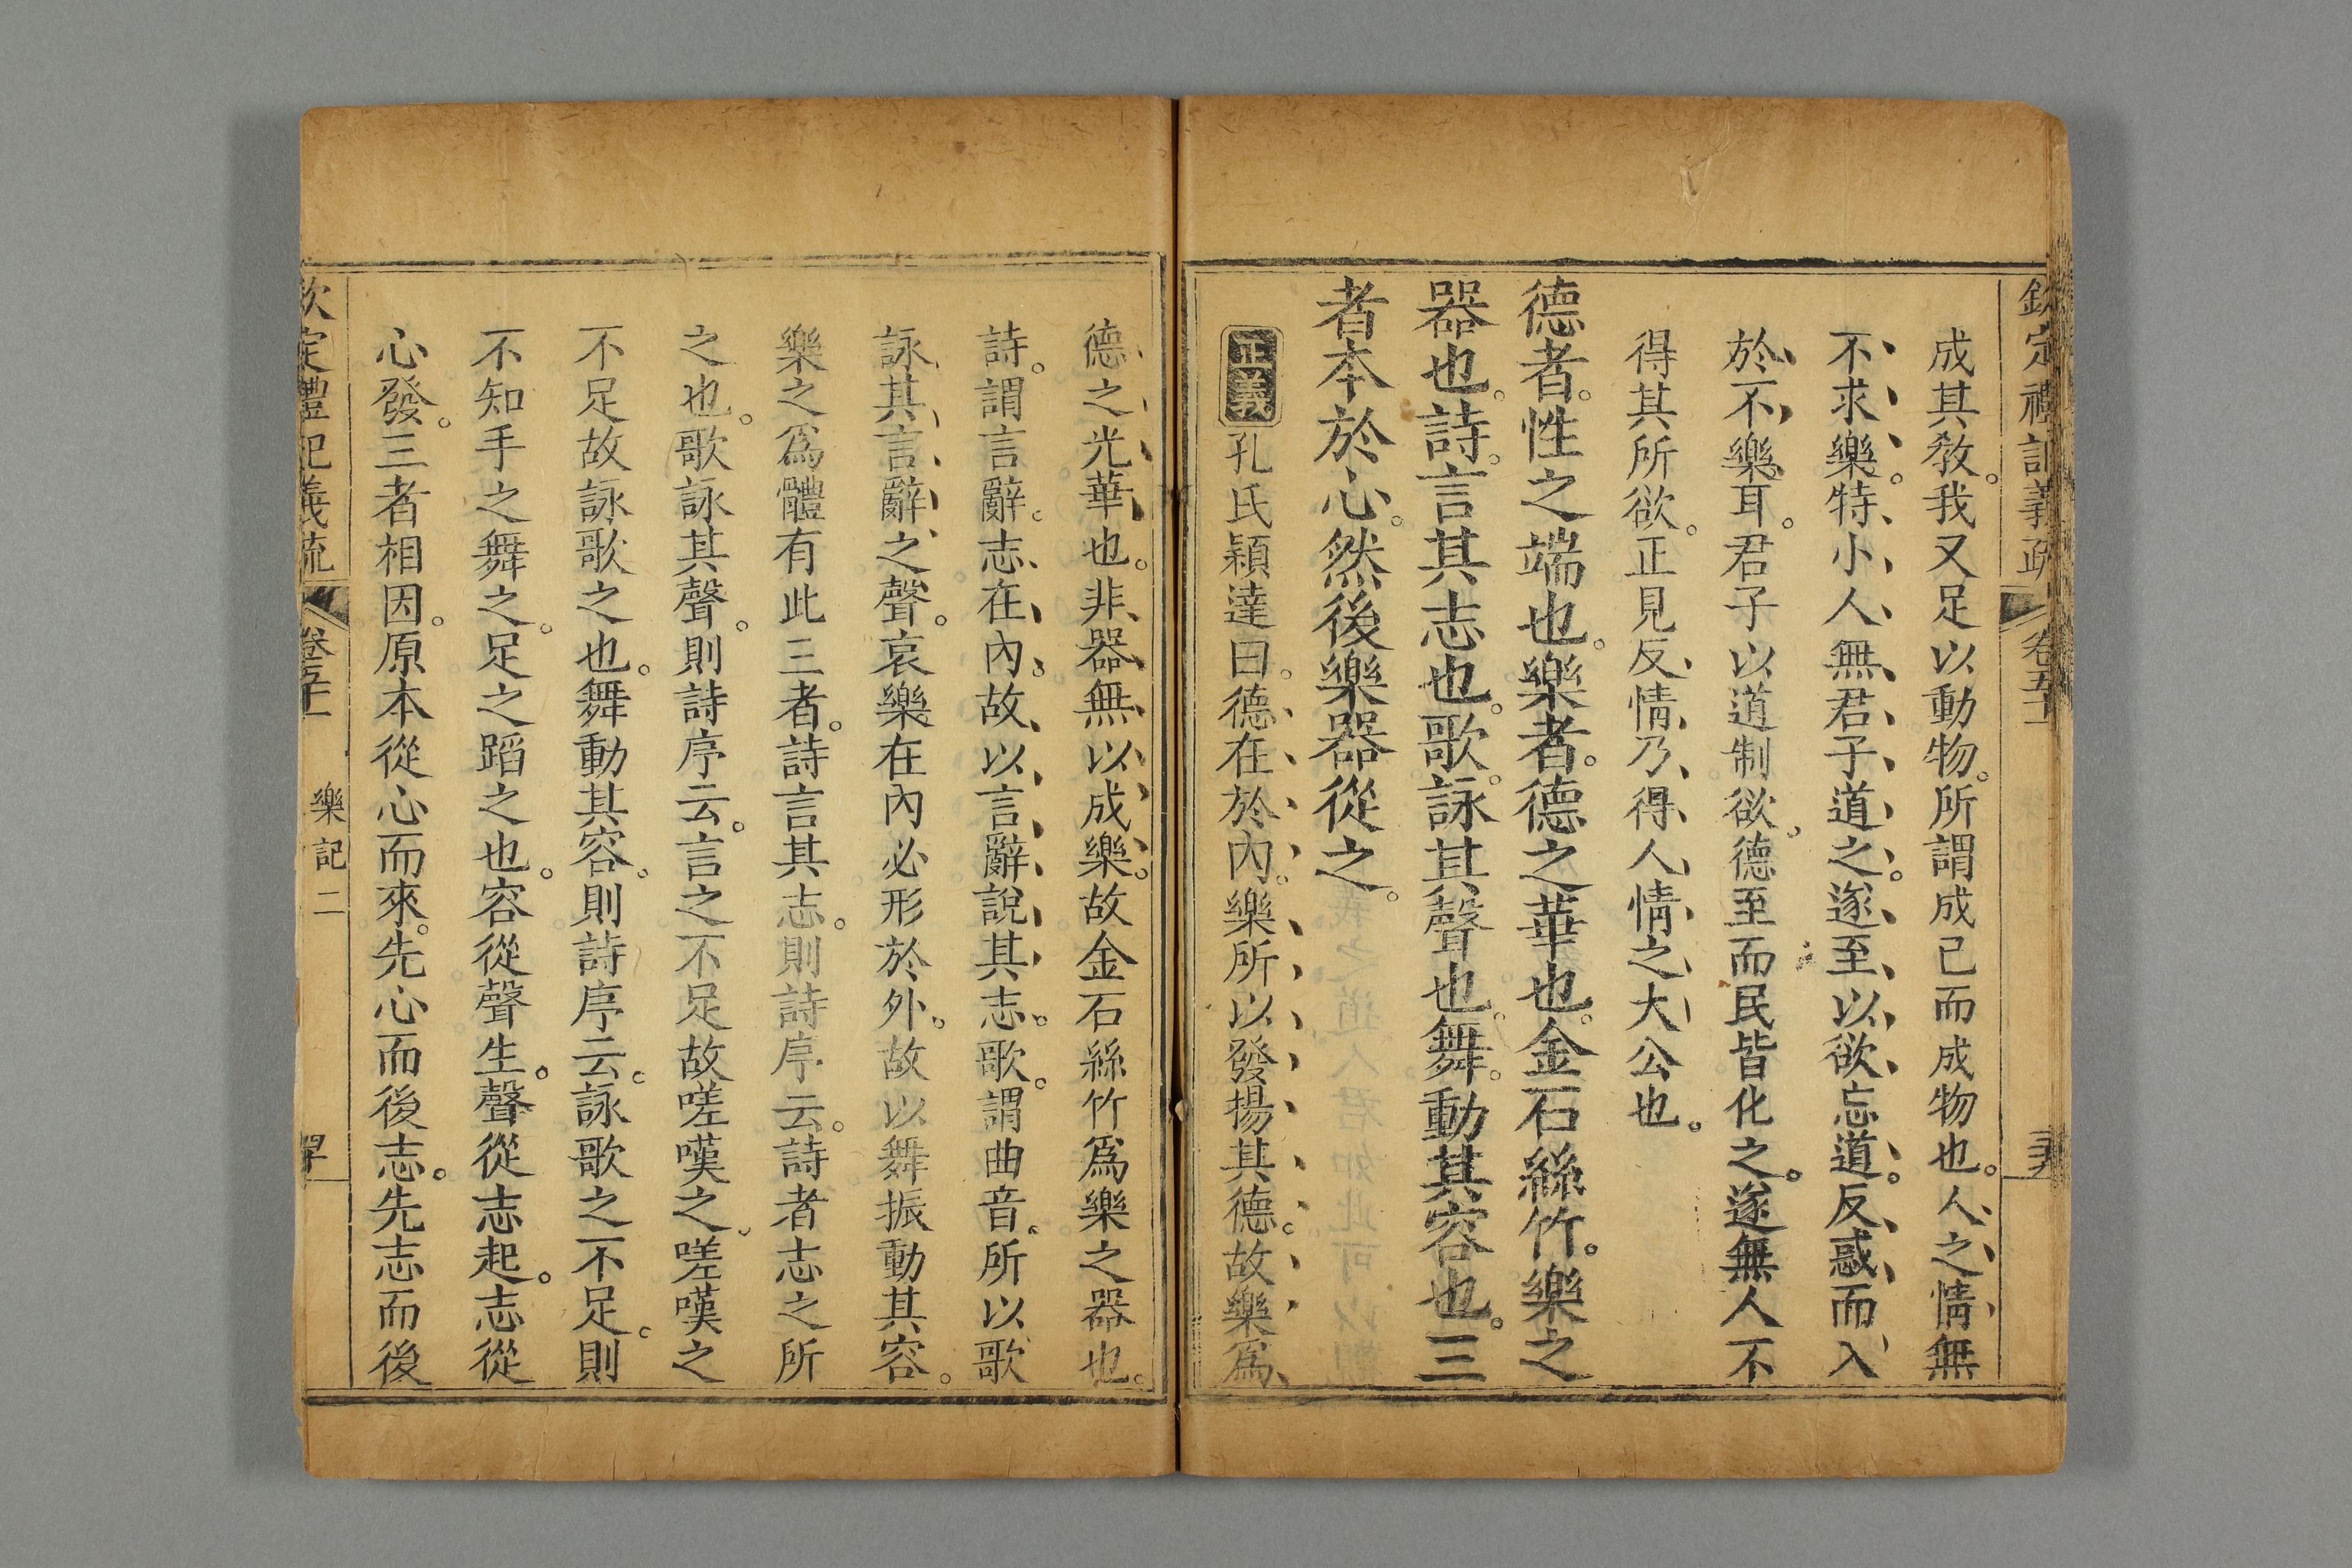 欽定禮記義疏 卷五十
成其教。我又足以動物。所謂成己而成物也。人之情無
不求樂。特小人無君子道之。遂至以欲忘道。反惑而入
於不樂耳。君子以道制欲。德至而民皆化之。遂無人不
得其所欲。正見反情乃得人情之大公也。
德者。性之端也。樂者。德之華也。金石絲竹。樂之
器也。詩。言其志也。歌。詠其聲也。舞。動其容也。三
者本於心。然後樂器從之。
正義 孔氏穎達曰。德在於內。樂所以發揚其德。故樂爲
德之光華也。非器無以成樂。故金石絲竹爲樂之器也。
詩。謂言辭。志在內。故以言辭說其志。歌。謂曲音。所以歌
詠其言辭之聲。哀樂在內必形於外。故以舞振動其容。
樂之爲體有此三者。詩言其志。則詩序云。詩者志之所
之也。歌詠其聲。則詩序云。言之不足故嗟嘆之。嗟嘆之
不足故詠歌之也。舞動其容。則詩序云。詠歌之不足。則
不知手之舞之。足之蹈之也。容從聲生。聲從志起。志從
心發。三者相因。原本從心而來。先心而後志。先志而後
欽定禮記義疏 卷五十 樂記二